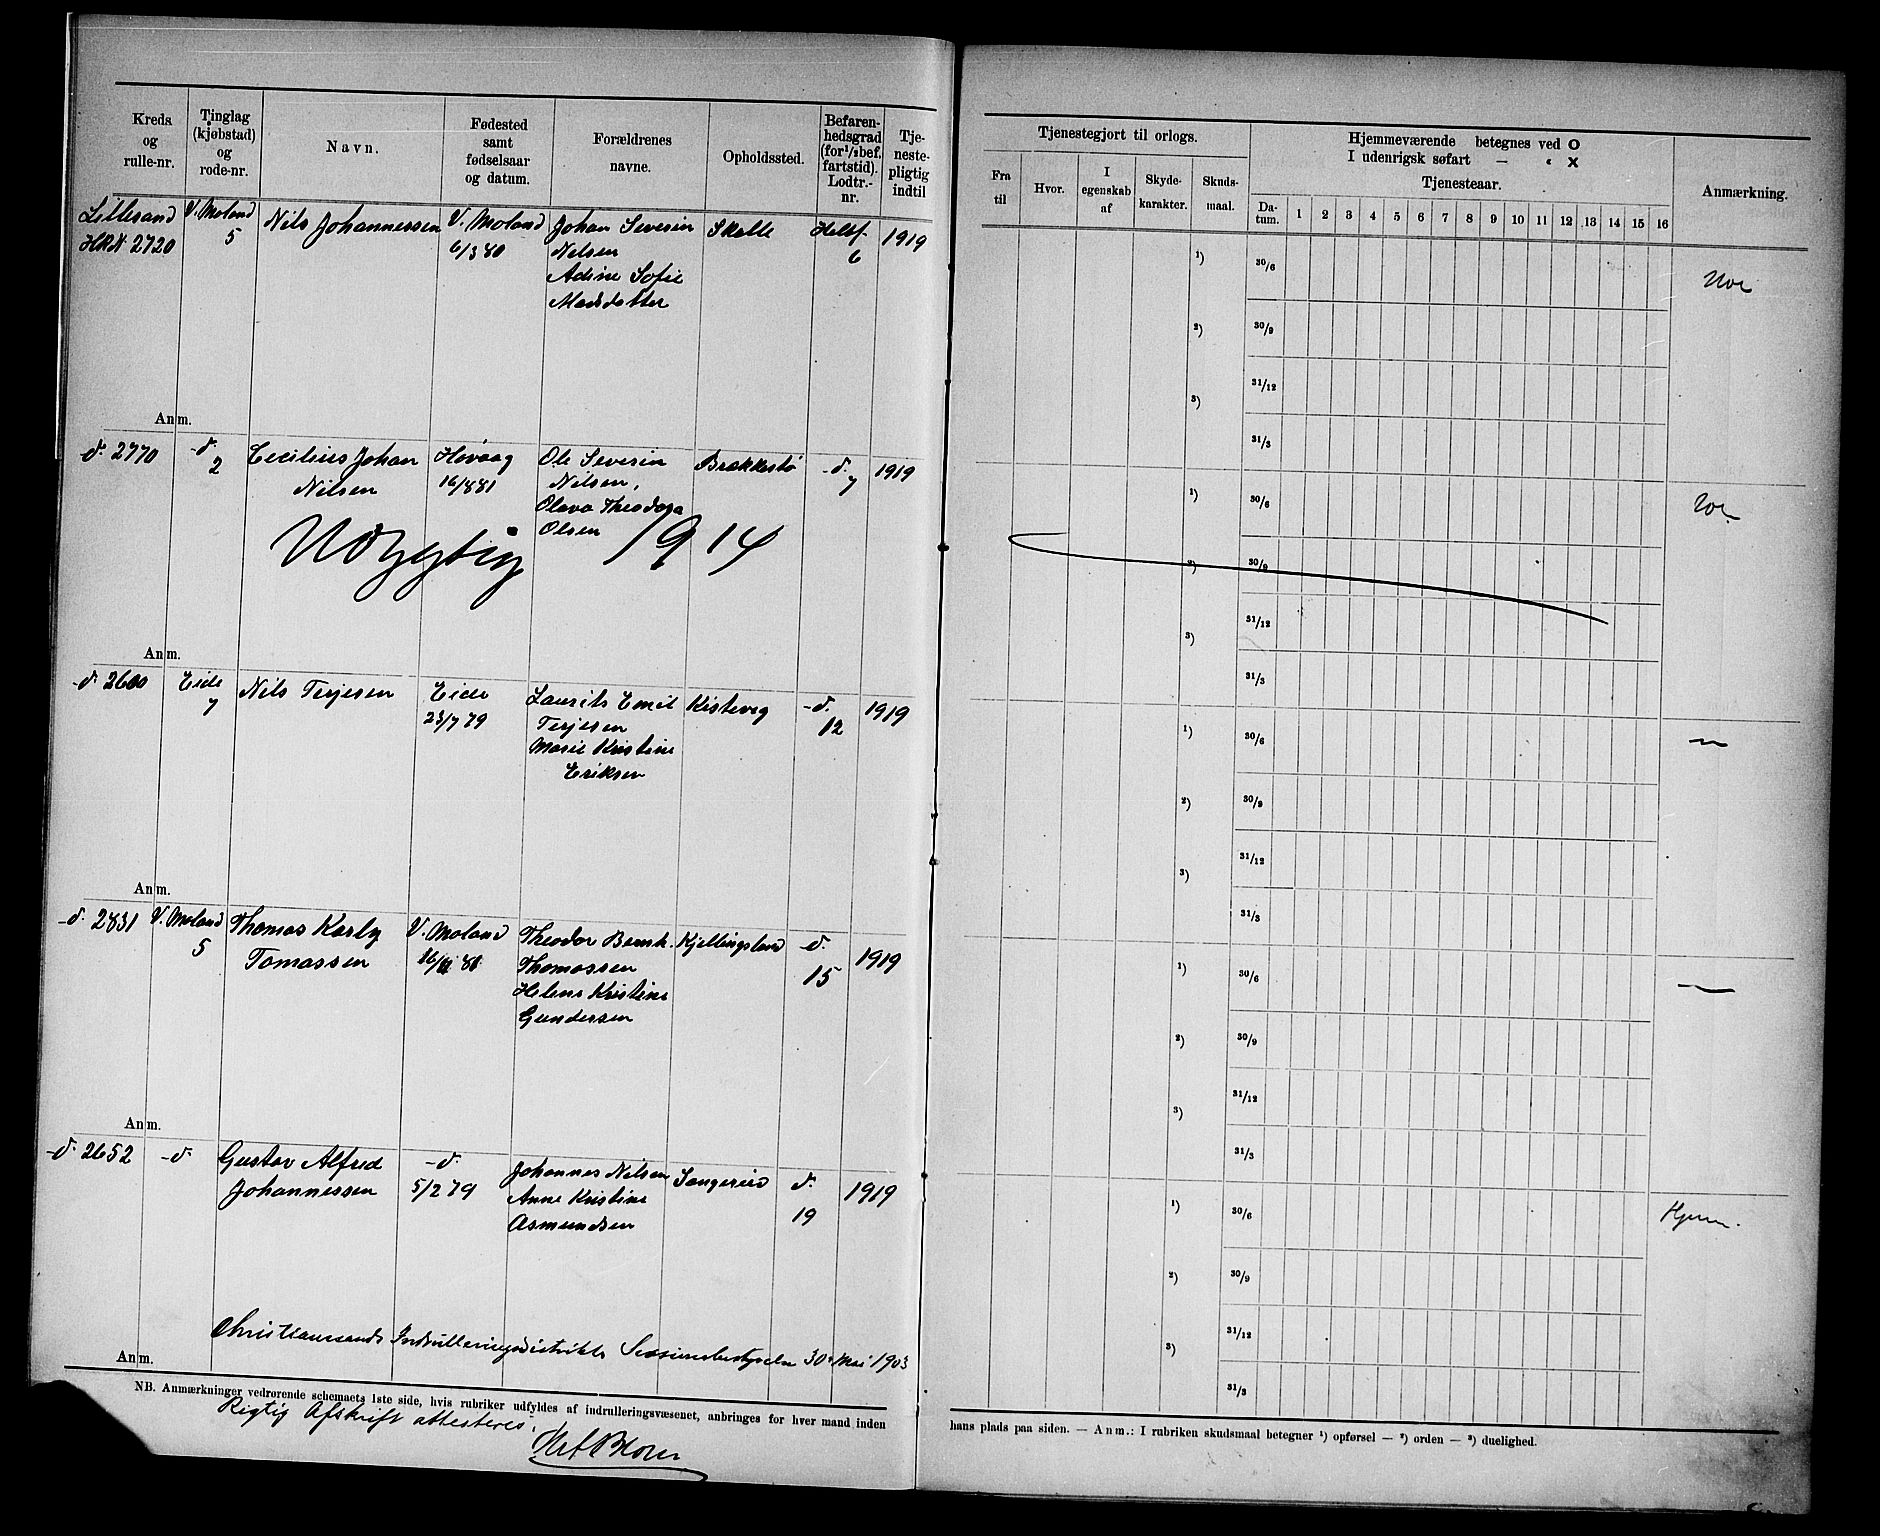 Kreds og rulle-nr.
Tinglag (kjøbstad) og rode-nr.
Navn.
Fødested samt fødselsaar og datum.
Forældrenes navne.
Opholdssted.
Befarenhedsgrad (for 1/1 bef. fartstid). Lodtr.-nr.
Tjenestepligtig indtil
Lillesand V. Moland Nils Johannessen V. Moland Johan Severin Skalle Heltf. 1919
HRN 2720 5 6/3 80 Nilsen 6
Adine Sofie
Madsdatter
Anm.
d. 2770 d. Cecilius Johan Høvaag Ole Severin Brækkestø d. 1919
2 Nilsen 16/8 81 Nilsen, 7
Olava Theodora
Olsen
Udygtig 1914
Anm.
d. 2600 Eide Nils Terjesen Eide Laurits Emil Kistevig d. 1919
7 23/7 79 Terjesen 12
Marie Kristine
Eriksen
Anm.
d. 2831 V. Moland Thomas Karly V. Moland Theodor Bernh. Kjellingsland d. 1919
5 Tomassen Thomassen 15
Helene Kristine
Gundersen
Anm.
d. 2652 d. Gustav Alfred d. Johannes Nilsen Sangereid d. 1919
Johannessen 5/2 79 Anne Kristine 19
Asmundsen
Christianssands Indrulleringsdistrikts Sessionsbestyrelse 30. Mai 1903
Anm.
NB. Anmærkninger vedrørende schemaets 1ste side, hvis rubriker udfyldes af indrulleringsvæsenet, anbringes for hver mand inden
Rigtig Afskrift attesteres.
Tjenestegjort til orlogs.
Hjemmeværende betegnes ved O
I udenrigsk søfart — « X
Tjenesteaar.
Anmærkning.
Fra til
Hvor.
I egenskab af
Skydekarakter.
Skudsmaal.
Datum. 1 2 3 4 5 6 7 8 9 10 11 12 13 14 15 16
1) 30/6
2) 30/9
31/12
3)
31/3
1) 30/6
2) 30/9
31/12
3)
31/3
1) 30/6
2) 30/9
31/12
3)
31/3
1) 30/6
2) 30/9
31/12
3)
31/3
1) 30/6 Hjem.
2) 30/9
31/12
3)
31/3
hans plads paa siden. — Anm.: I rubriken skudsmaal betegner 1) opførsel — 2) orden — 3) duelighed.